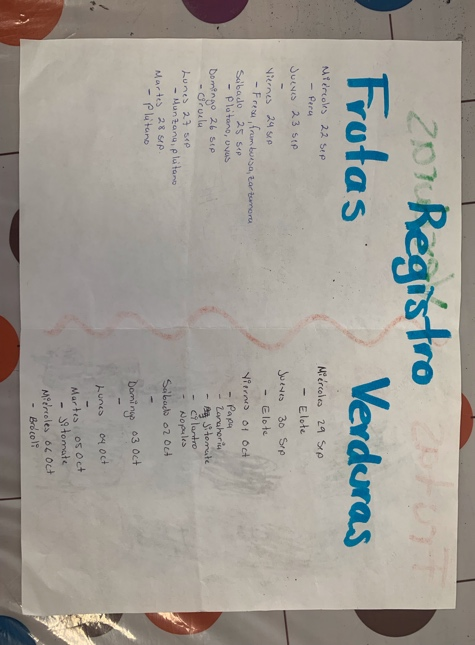 Registro
Frutas
Miércoles 22 sep
- Pera
Jueves 23 sep
-
Viernes 24 sep
- Fresa, frambuesa, zarzamora
Sábado 25 sep
- Plátano, uvas
Domingo 26 sep
- Ciruela
Lunes 27 sep
- Manzana, plátano
Martes 28 sep.
- Plátano
Verduras
Miércoles 29 sep
- Elote
Jueves 30 sep
- Elote
Viernes 01 Oct
- Papa
- Zanahoria
- Jitomate
- Cilantro
- Nopales
Sábado 02 Oct
-
Domingo 03 Oct
-
Lunes 04 Oct
-
Martes 05 Oct
- Jitomate
Miércoles 06 Oct
- Brócoli